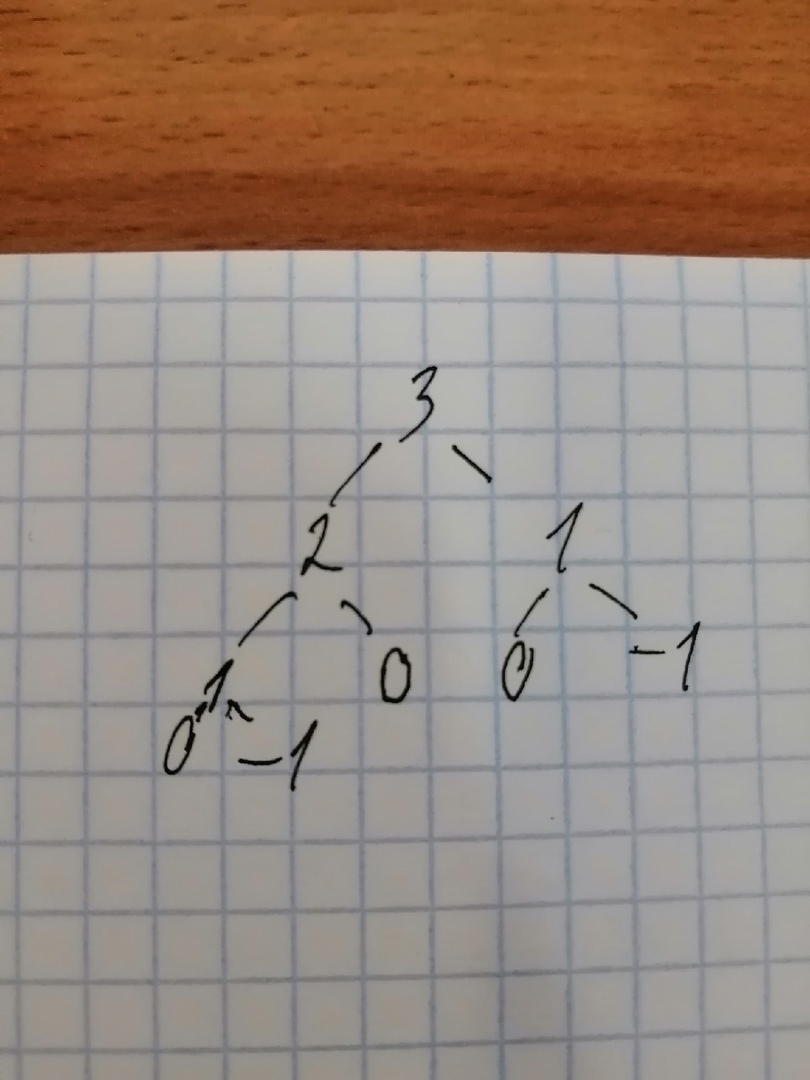 3
2 1
1 0 0 -1
0 -1